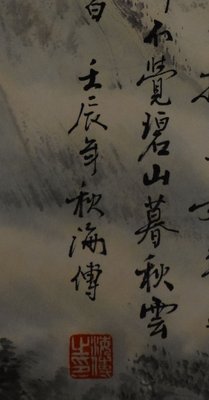 不覺碧山暮秋雲
白 壬辰年秋海傳